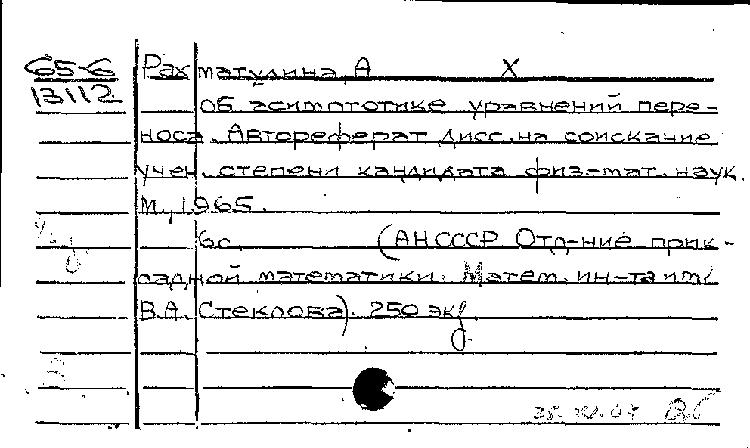 65-6 Рахматулина, А Х
13112 об асимптотике уравнений пере-
носа. Автореферат дисс. на соискание
учен. степени кандидата физ-мат. наук.
М., 1965.
6с. (АН СССР Отд-ние прик-
ладной математики. Матем. ин-та им.
В.А. Стеклова). 250 экз.